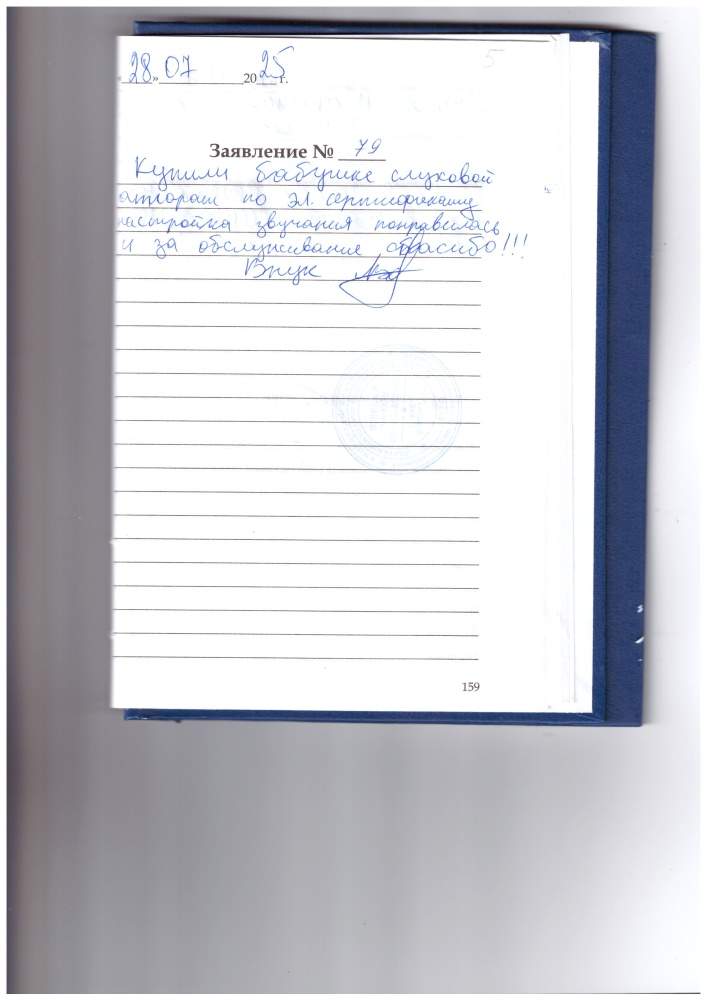 «28» 07 2025 г.
5
Заявление № 79
Купили бабушке слуховой
аппарат по эл. сертификату
настройка звучания понравилась
и за обслуживание спасибо!!!
Внук
159